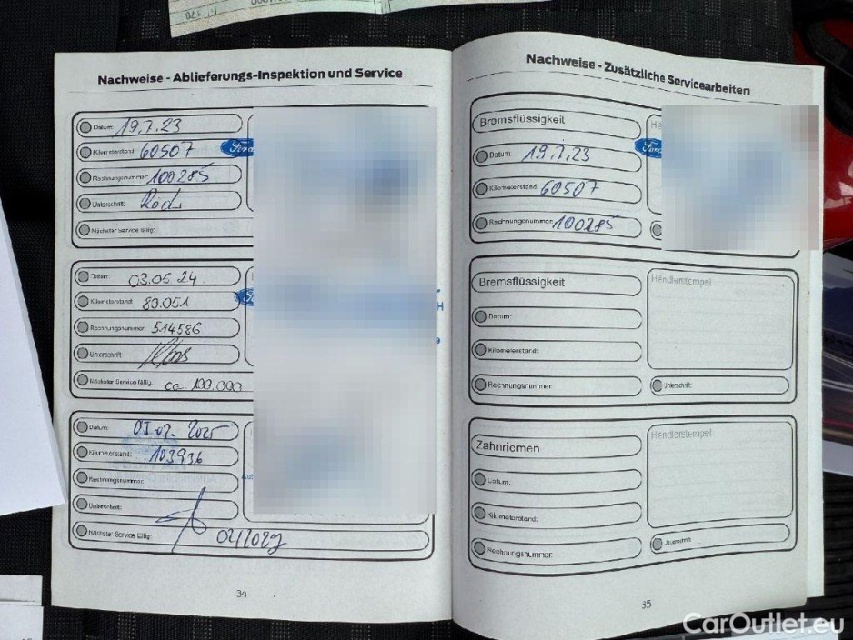 Nachweise - Ablieferungs-Inspektion und Service
Datum: 19.7.23
Kilometerstand: 60507
Ford
Rechnungsnummer: 100285
Unterschrift:
Nächster Service fällig:
Datum: 03.05.24
Kilometerstand: 80.051
Rechnungsnummer: 514586
Unterschrift:
Nächster Service fällig: ca 100.000
H
Datum: 2025
Kilometerstand: 103936
Rechnungsnummer:
Unterschrift:
Nächster Service fällig:
34
Nachweise - Zusätzliche Servicearbeiten
Bremsflüssigkeit
Hä
Datum: 19.7.23
Ford
Kilometerstand: 60507
Rechnungsnummer: 100285
Bremsflüssigkeit
Händlerstempel
Datum:
Kilometerstand:
Rechnungsnummer:
Unterschrift:
Zahnriemen
Händlerstempel
Datum:
Kilometerstand:
Rechnungsnummer:
Unterschrift:
35
CarOutlet.eu